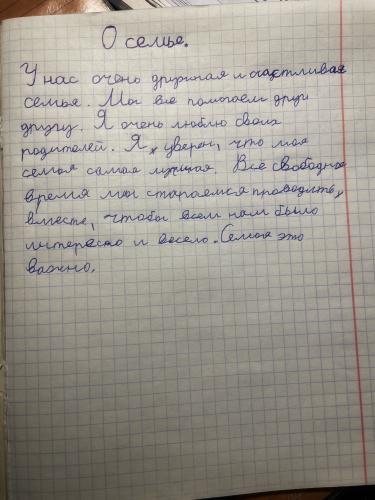 О семье.
У нас очень дружная и счастливая
семья. Мы все помогаем друг
другу. Я очень люблю своих
родителей. Я уверен, что моя
семья самая лучшая. Всё свободное
время мы стараемся проводить
вместе, чтобы всем нам было
интересно и весело. Семья это
важно.